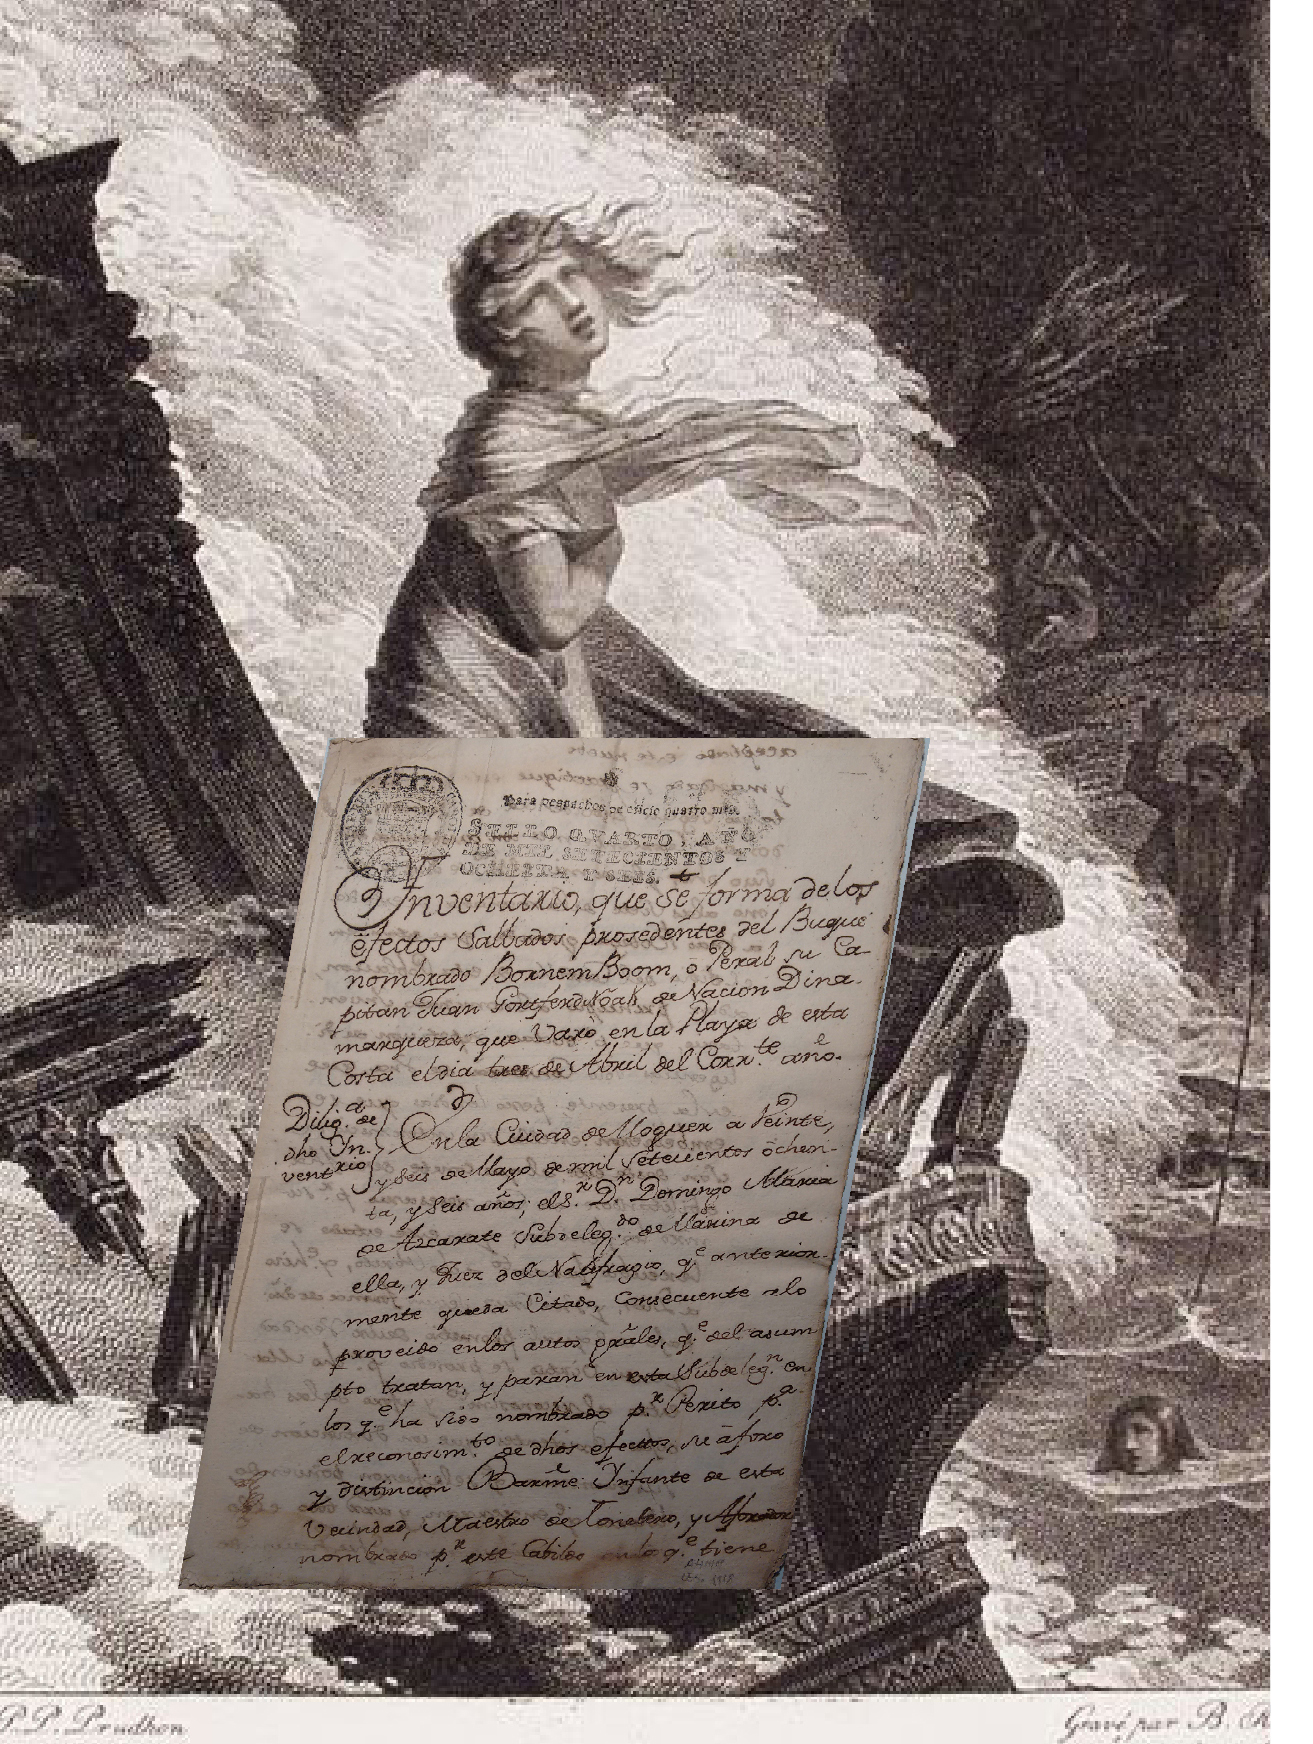 Para despachos de oficio quatro mrs.
SELLO QVARTO, AÑO
DE MIL SETECIENTOS Y
OCHENTA Y SEIS.
Inventario, que se forma delos
efectos Salbados prosedentes del Buque
nombrado BornemBoom, ò Peral su Ca-
pitan Juan de Nacion Dina-
marqueza, que Varò en la Playa de esta
Costa el dia tres de Abril del Corr.te año.
Dilig.a de
dho In-
ventxio
En la Ciudad de Moguer a Veinte,
y Seis de Mayo de mil Setecientos ôchen-
ta, y Seis años; el S.r D.n Domingo Maria
de Azcarate Subdeleg.do de Marina de
ella, y Juez del Naufragio, q.e anterior-
mente queda Citado, Consecuente alo
proveido enlos autos prâles, q.e del asum
pto tratan, y paran en esta Subdeleg.n en
los q.e ha sido nombrado p.r Perito p.a
el reconosim.to de dhos efectos, su âforo
y distincion Barmê Ynfante de esta
Vecindad, Maestro de Tonelero, y Aforador
nombrado p.r este Cabildo q.e tiene
P.P. Prudhon
Gravé par B. R